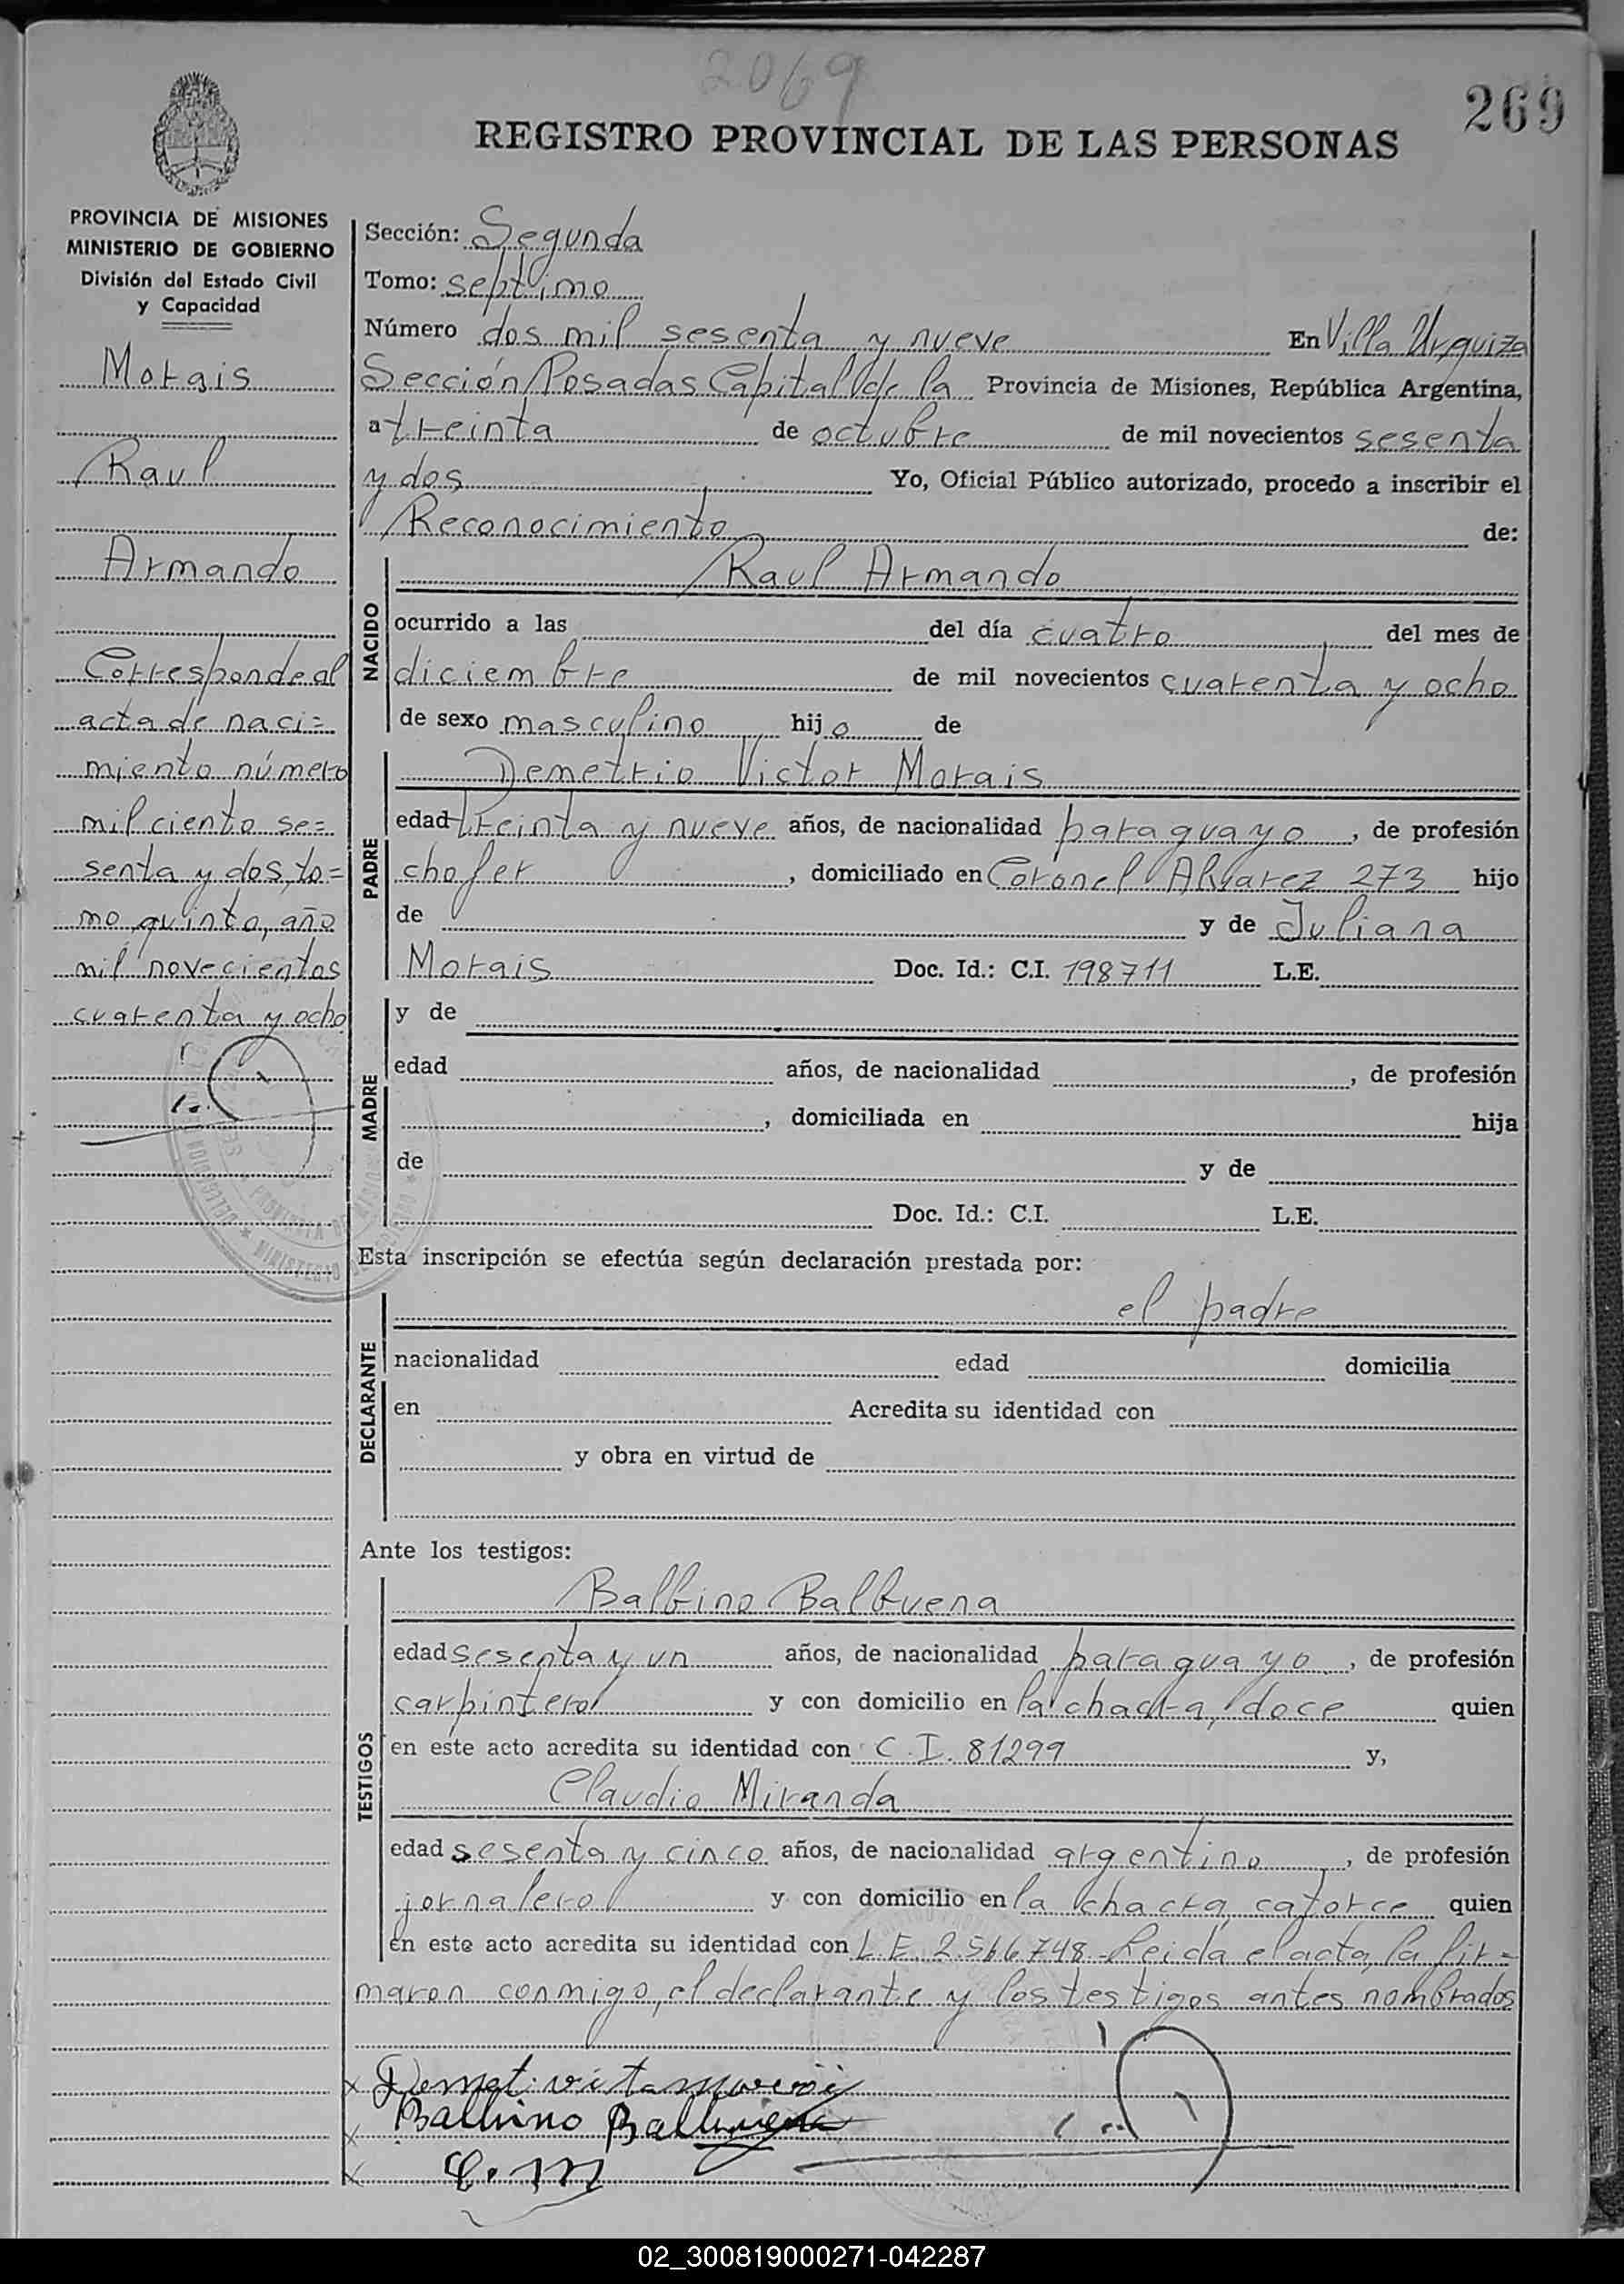 2069
269
REGISTRO PROVINCIAL DE LAS PERSONAS
PROVINCIA DE MISIONES
MINISTERIO DE GOBIERNO
División del Estado Civil
y Capacidad
Morais
Raul
Armando
Corresponde al
acta de naci=
miento número
mil ciento se=
senta y dos, to=
mo quinto, año
mil novecientos
cuarenta y ocho
Sección: Segunda
Tomo: septimo
Número dos mil sesenta y nueve En Villa Urquiza
Sección Posadas Capital de la Provincia de Misiones, República Argentina,
a treinta de octubre de mil novecientos sesenta
y dos Yo, Oficial Público autorizado, procedo a inscribir el
Reconocimiento de:
NACIDO
Raul Armando
ocurrido a las del día cuatro del mes de
diciembre de mil novecientos cuarenta y ocho
de sexo masculino hijo de
PADRE
Demetrio Victor Morais
edad treinta y nueve años, de nacionalidad paraguayo, de profesión
chofer, domiciliado en Coronel Alvarez 273 hijo
de y de Juliana
Morais Doc. Id.: C.I. 198711 L.E.
MADRE
y de
edad años, de nacionalidad , de profesión
, domiciliada en hija
de y de
Doc. Id.: C.I. L.E.
Esta inscripción se efectúa según declaración prestada por:
DECLARANTE
el padre
nacionalidad edad domicilia
en Acredita su identidad con
y obra en virtud de
Ante los testigos:
TESTIGOS
Balbino Balbuena
edad sesenta y un años, de nacionalidad paraguayo, de profesión
carpintero y con domicilio en la chacra, doce quien
en este acto acredita su identidad con C.I. 81299 y,
Claudio Miranda
edad sesenta y cinco años, de nacionalidad argentino, de profesión
jornalero y con domicilio en la chacra catorce quien
en este acto acredita su identidad con L.E. 2.566.748- Leida el acta, la fir=
maron conmigo, el declarante y los testigos antes nombrados
Balbino Balbuena
C. M
02_300819000271-042287